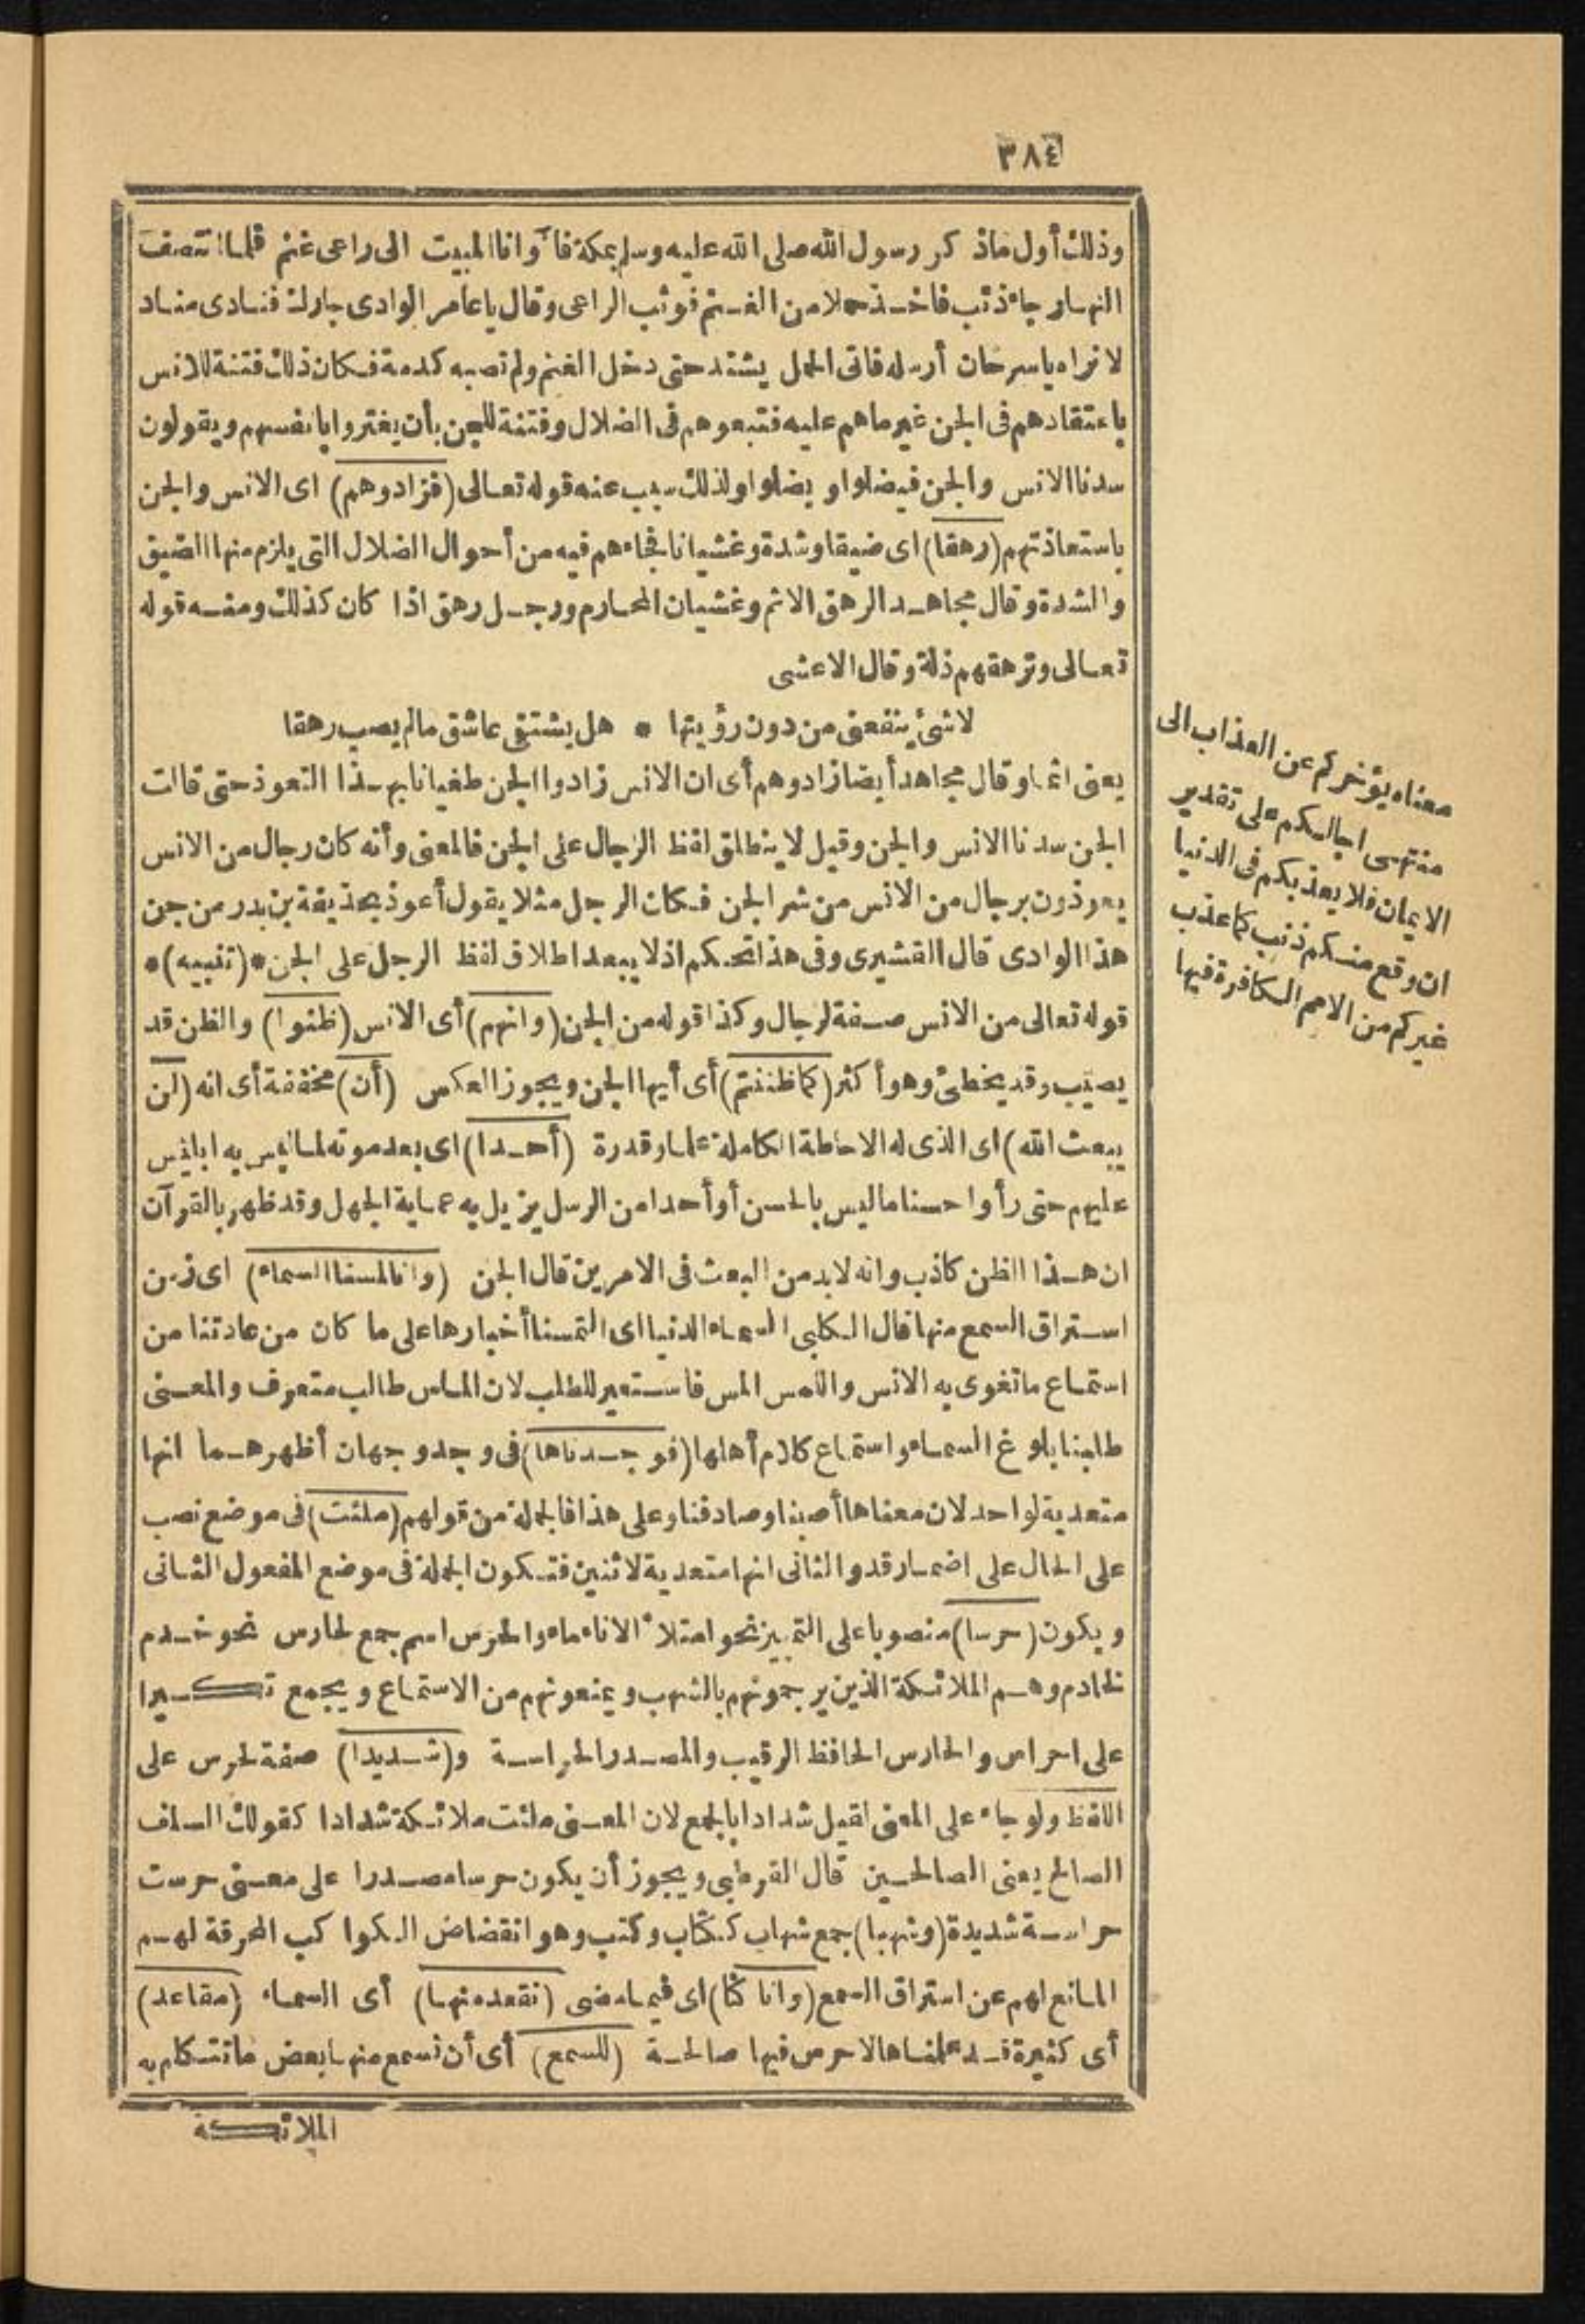 ٣٨٤
وذلك أول ماذكر رسول الله صلى الله عليه وسلم بمكة فآوانا المبيت الى راعى غنم فلما انتصف
النهار جاء ذئب فاخذ حملا من الغنم فوثب الراعى وقال يا عامر الوادى جارك فنادى مناد
لا نراه يا سرحان أرسله فاتى الحمل يشتد حتى دخل الغنم ولم تصبه كدمة فكان ذلك فتنة للانس
باعتقادهم فى الجن غير ماهم عليه فتبعوهم فى الضلال وفتنة للجن بأن يغتروا بانفسهم ويقولون
سدنا الانس والجن فيضلوا ويضلوا ولذلك سبب عنه قوله تعالى (فزادوهم) اى الانس والجن
باستعاذتهم (رهقا) اى ضيقا وشدة وغشيانا فجاءهم فيه من أحوال الضلال التى يلزم منها الضيق
والشدة وقال مجاهد الرهق الاثم وغشيان المحارم ورجل رهق اذا كان كذلك ومنه قوله
تعالى وترهقهم ذلة وقال الاعشى
لاشئ ينفعنى من دون رؤيتها * هل يشتفى عاشق مالم يصب رهقا
يعنى اثما وقال مجاهد أيضا زادوهم أى ان الانس زادوا الجن طغيانا بهذا التعوذ حتى قالت
الجن سدنا الانس والجن وقيل لا ينطلق لفظ الرجال على الجن فالمعنى وأنه كان رجال من الانس
يعوذون برجال من الانس من شر الجن فكان الرجل مثلا يقول أعوذ بحذيفة بن بدر من جن
هذا الوادى قال القشيرى وفى هذا تحكم اذ لا يبعد اطلاق لفظ الرجل على الجن *(تنبيه)*
قوله تعالى من الانس صفة لرجال وكذا قوله من الجن (وانهم) أى الانس (ظنوا) والظن قد
يصيب وقد يخطئ وهو أكثر (كما ظننتم) أى أيها الجن ويجوز العكس (أن) مخففة أى انه (لن
يبعث الله) اى الذى له الاحاطة الكاملة علما وقدرة (أحدا) اى بعد موته لما لبس به ابليس
عليهم حتى رأوا حسنا ماليس بالحسن أو أحدا من الرسل يزيل به عماية الجهل وقد ظهر بالقرآن
ان هذا الظن كاذب وانه لابد من البعث فى الامرين قال الجن (وانا لمسنا السماء) اى زمن
استراق السمع منها قال الكلبى السماء الدنيا اى التمسنا أخبارها على ما كان من عادتنا من
استماع ما تغوى به الانس واللمس المس فاستعير للطلب لان الماس طالب متعرف والمعنى
طلبنا بلوغ السماء واستماع كلام أهلها (فوجدناها) فى وجد وجهان أظهرهما انها
متعدية لواحد لان معناها أصبنا وصادفنا وعلى هذا فالجملة من قولهم (ملئت) فى موضع نصب
على الحال على اضمار قد والثانى انها متعدية لاثنين فتكون الجملة فى موضع المفعول الثانى
ويكون (حرسا) منصوبا على التمييز نحو امتلأ الاناء ماء والحرس اسم جمع لحارس نحو خدم
لخادم وهم الملائكة الذين يرجمونهم بالشهب ويمنعونهم من الاستماع ويجمع تكسيرا
على احراس والحارس الحافظ الرقيب والمصدر الحراسة و(شديدا) صفة لحرس على
اللفظ ولو جاء على المعنى لقيل شدادا بالجمع لان المعنى ملئت ملائكة شدادا كقولك السلف
الصالح يعنى الصالحين قال القرطبى ويجوز أن يكون حرسا مصدرا على معنى حرست
حراسة شديدة (وشهبا) جمع شهاب ككتاب وكتب وهو انقضاض الكواكب المحرقة لهم
المانع لهم عن استراق السمع (وانا كنا) اى فيما مضى (نقعد منها) أى السماء (مقاعد)
أى كثيرة قد علمناها لا حرس فيها صالحة (للسمع) أى أن نسمع منها بعض ما تتكلم به
الملائكة
معناه يؤخركم عن العذاب الى
منتهى اجالكم على تقدير
الايمان فلا يعذبكم فى الدنيا
ان وقع منكم ذنب كما عذب
غيركم من الامم الكافرة فيها